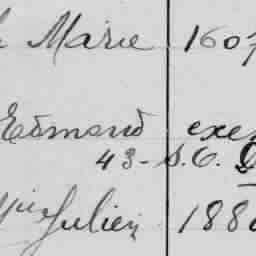 Marie 1607
Edmond exe
43-S.C.
Julien 188